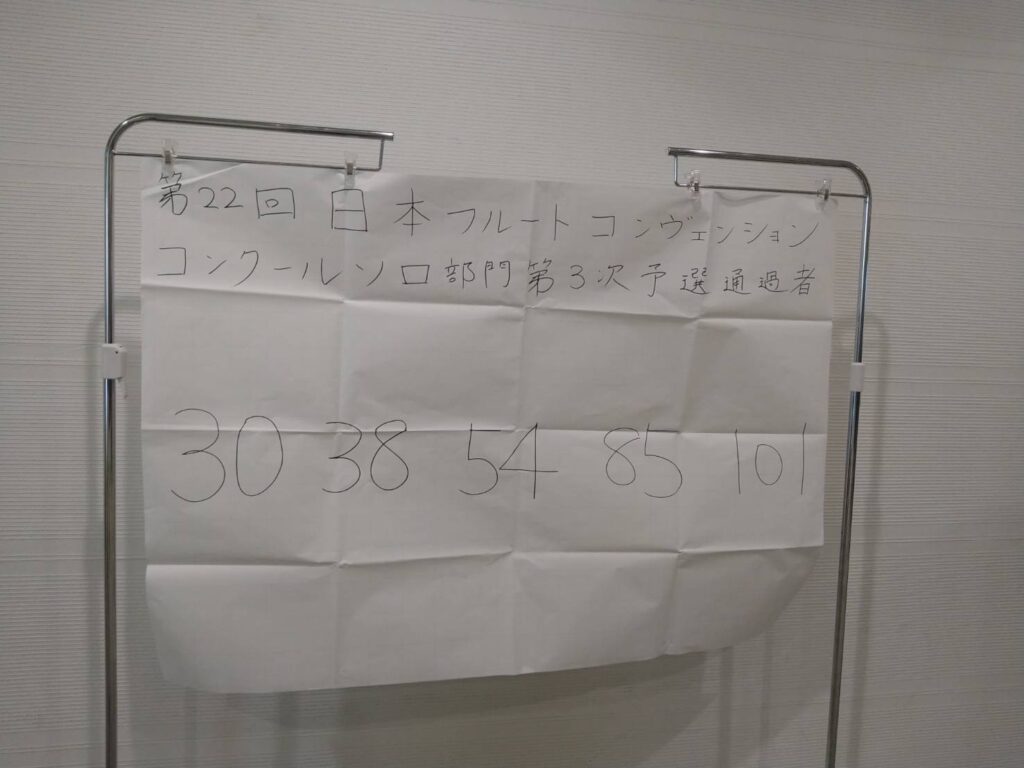 第22回 日本フルートコンヴェンション
コンクールソロ部門第3次予選通過者
30 38 54 85 101